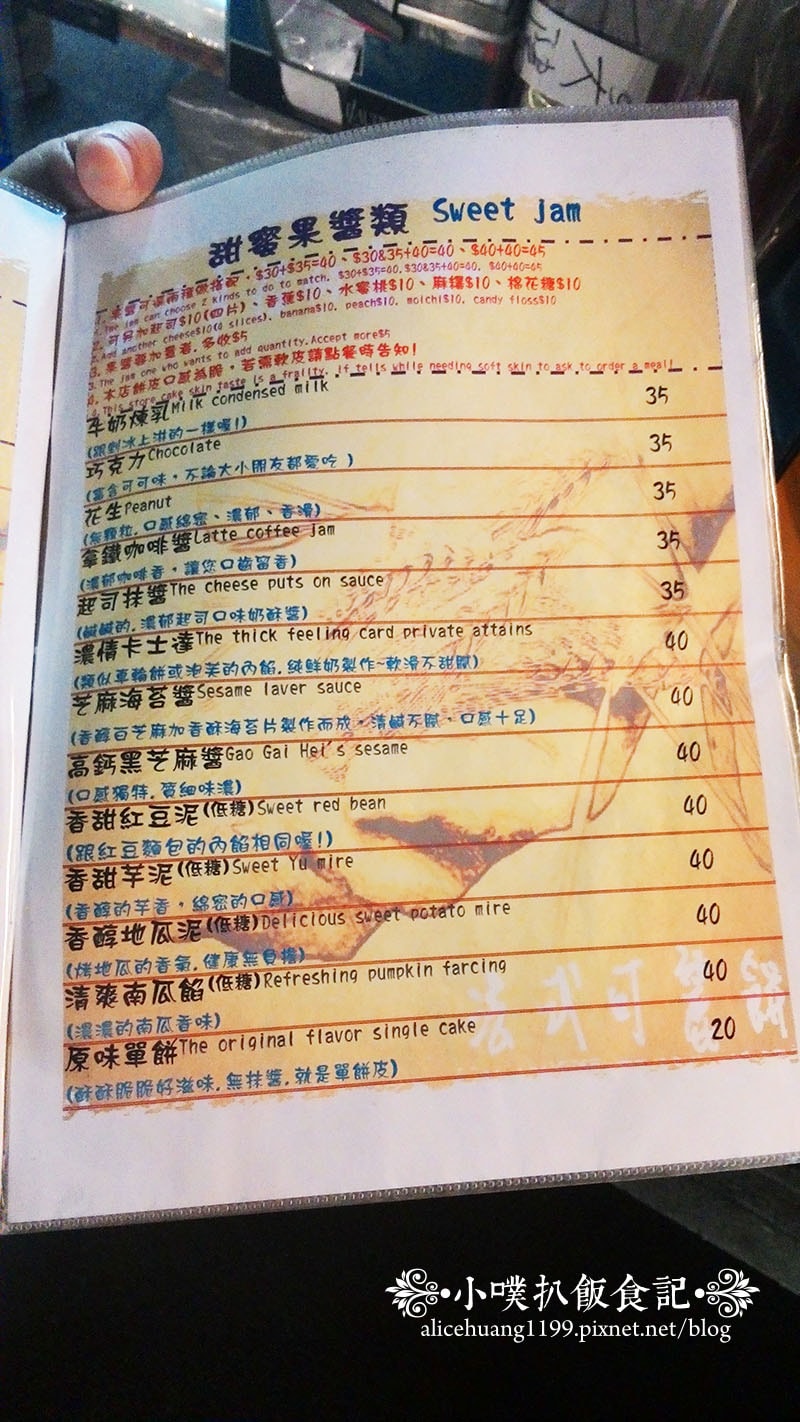 甜蜜果醬類 Sweet jam
1. 果醬可選兩種做搭配, $30+$35=40、$30&35+40=40、$40+40=45
1. The jam can choose 2 kinds to do to match. $30+$35=40, $30&35+40=40, $40+40=45
2. 可另加起司$10(四片)、香蕉$10、水蜜桃$10、麻糬$10、棉花糖$10
2. Add another cheese$10(4 slices), banana$10, peach$10, moichi$10, candy floss$10
3. 果醬要加量者, 多收$5
3. The jam one who wants to add quantity, Accept more$5
4. 本店餅皮口感為脆, 若需軟皮請點餐時告知!
4. This store cake skin taste is a frailty, if tells while needing soft skin to ask to order a meal!
牛奶煉乳Milk condensed milk 35
(跟剉冰上淋的一樣喔!)
巧克力Chocolate 35
(富含可可味, 不論大小朋友都愛吃)
花生Peanut 35
(無顆粒, 口感綿密、濃郁、香滑)
拿鐵咖啡醬Latte coffee jam 35
(濃郁咖啡香, 讓您口齒留香)
起司抹醬The cheese puts on sauce 35
(鹹鹹的, 濃郁起司口味奶酥醬)
濃情卡士達The thick feeling card private attains 40
(類似車輪餅或泡芙的內餡, 純鮮奶製作~軟滑不甜膩)
芝麻海苔醬Sesame laver sauce 40
(香醇白芝麻加香酥海苔片製作而成, 清鹹不膩, 口感十足)
高鈣黑芝麻醬Gao Gai Hei's sesame 40
(口感獨特, 質細味濃)
香甜紅豆泥(低糖)Sweet red bean 40
(跟紅豆麵包的內餡相同喔!)
香甜芋泥(低糖)Sweet Yu mire 40
(香醇的芋香, 綿密的口感)
香醇地瓜泥(低糖)Delicious sweet potato mire 40
(烤地瓜的香氣, 健康無負擔)
清爽南瓜餡(低糖)Refreshing pumpkin farcing 40
(濃濃的南瓜香味)
原味單餅The original flavor single cake 20
(酥酥脆脆好滋味, 無抹醬, 就是單餅皮)
法式可麗餅
小噗扒飯食記
alicehuang1199.pixnet.net/blog